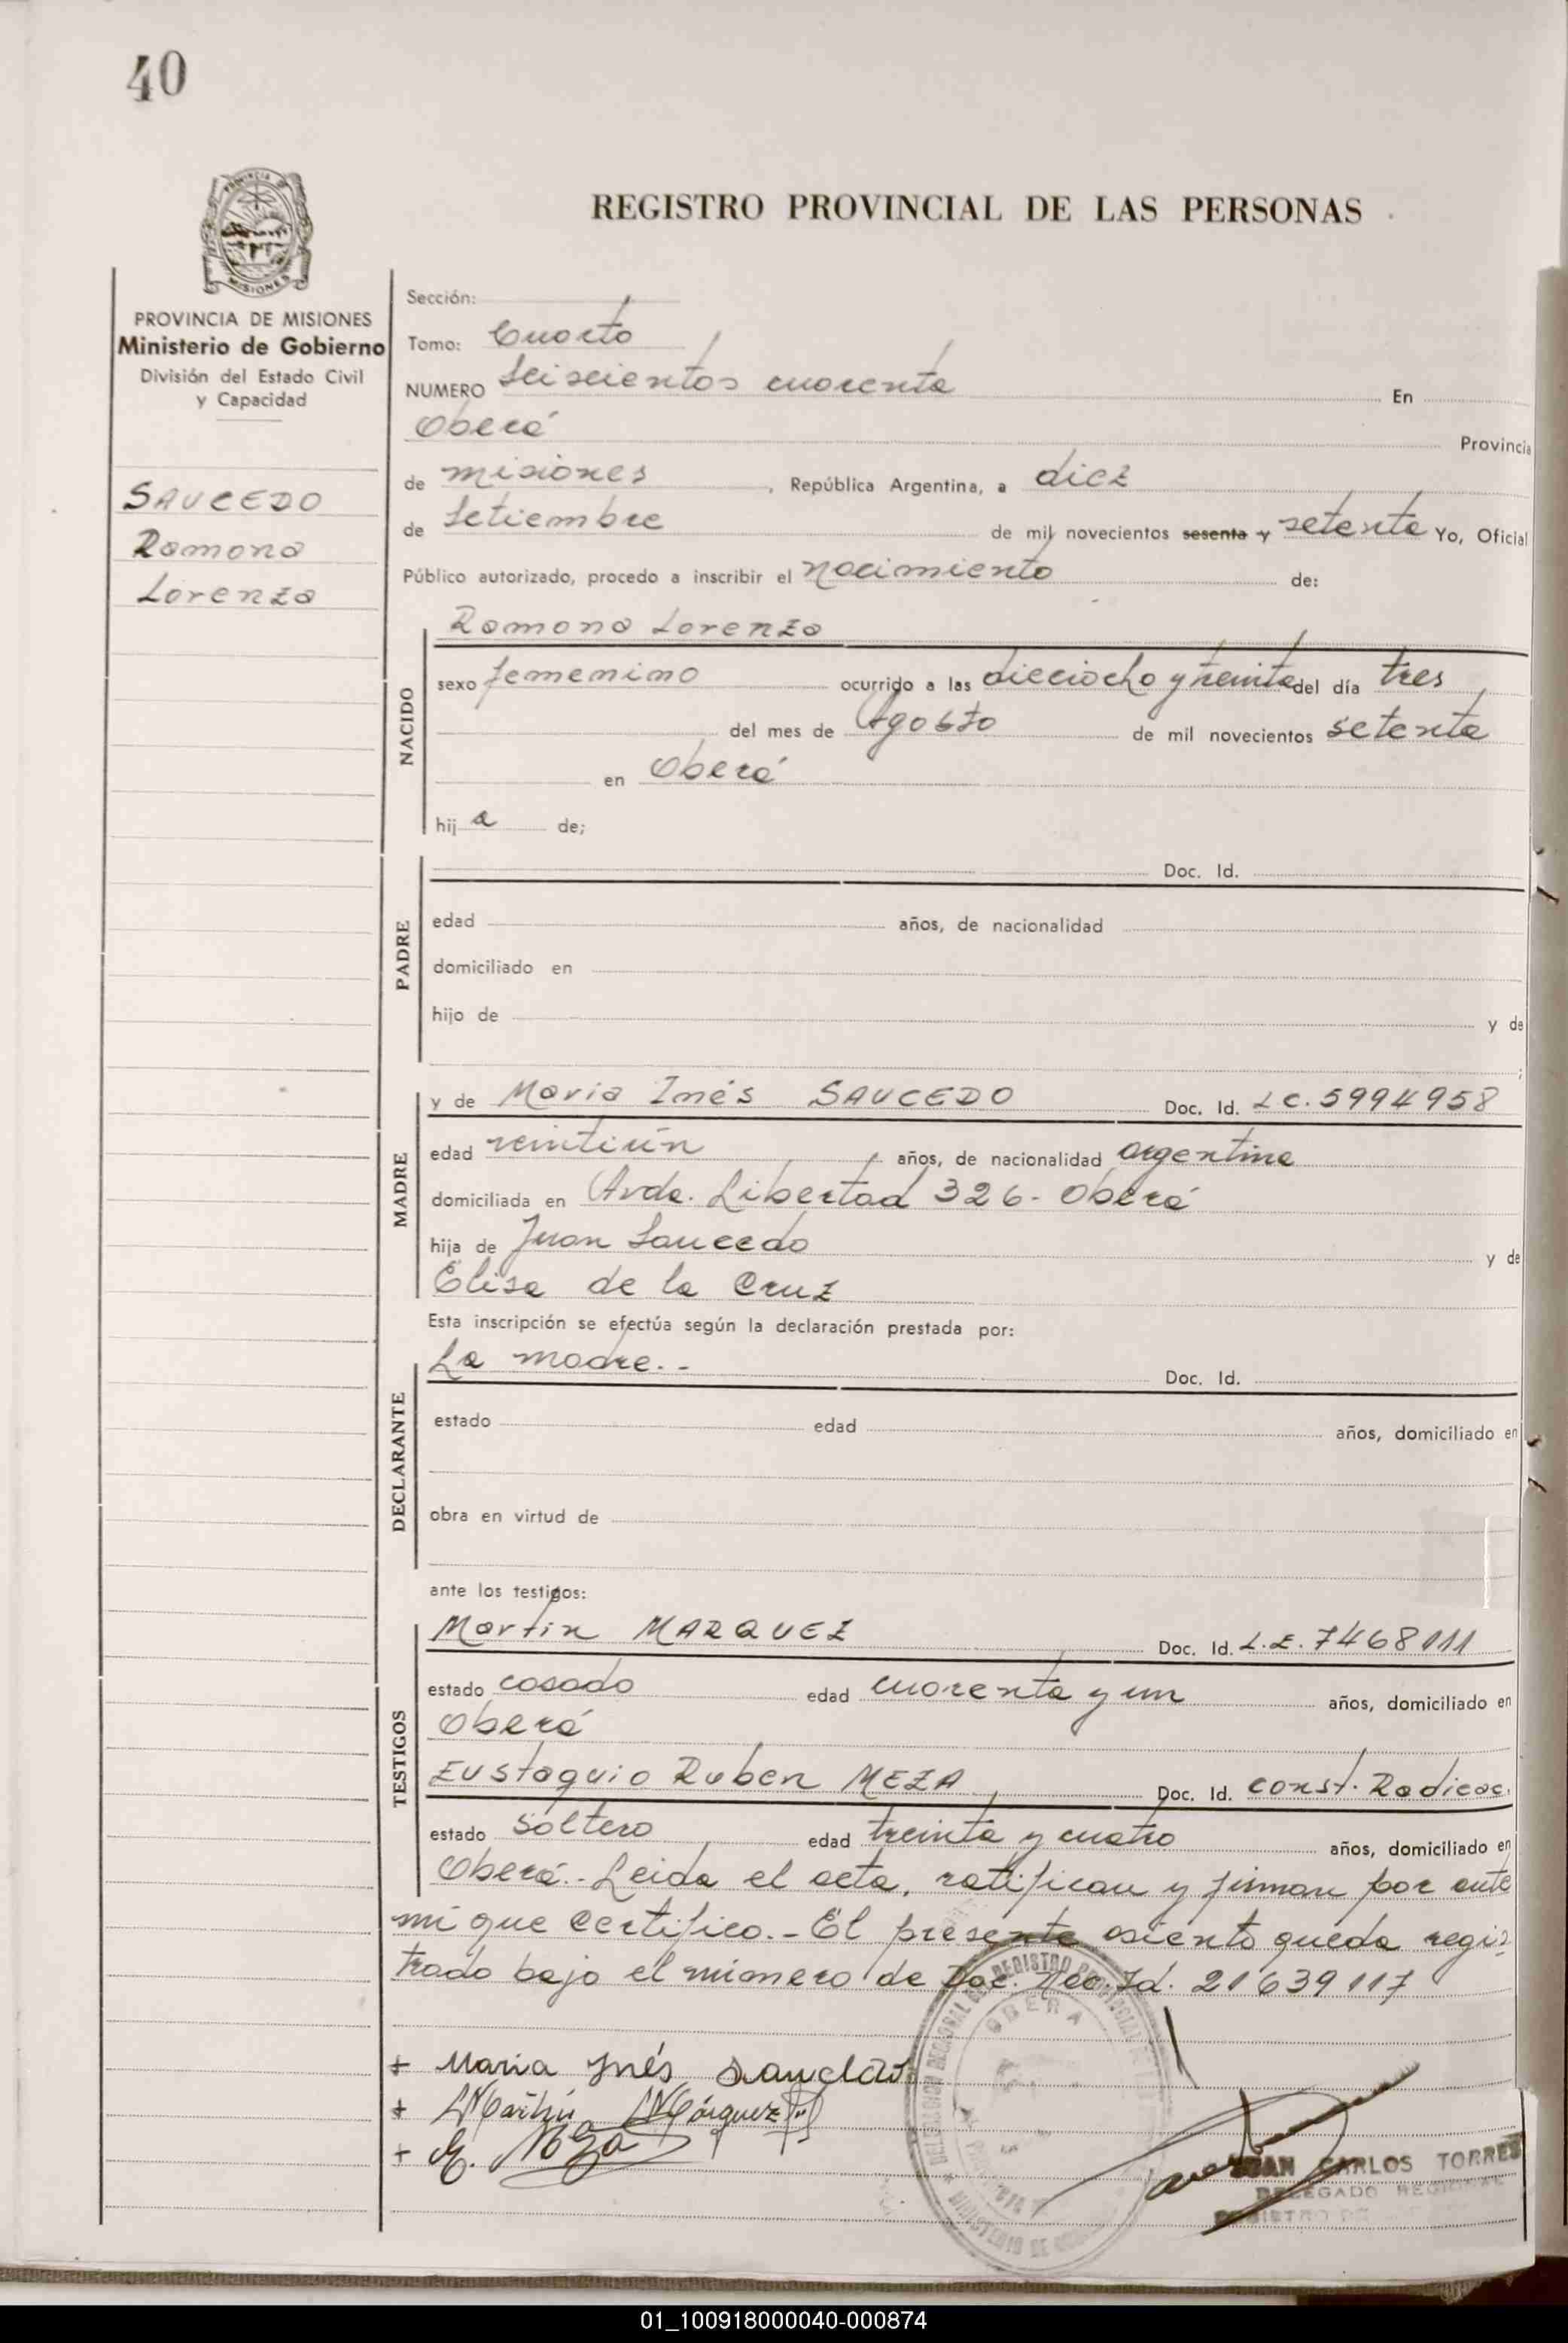 40
REGISTRO PROVINCIAL DE LAS PERSONAS
PROVINCIA DE MISIONES
Ministerio de Gobierno
División del Estado Civil
y Capacidad
SAUCEDO
Ramona
Lorenza
Sección:
Tomo: Cuarto
NUMERO Seiscientos cuarenta En
Oberá Provincia
de misiones, República Argentina, a diez
de Setiembre de mil novecientos sesenta y setenta Yo, Oficial
Público autorizado, procedo a inscribir el nacimiento de:
NACIDO
Ramona Lorenza
sexo femenino ocurrido a las dieciocho y treinta del día tres
del mes de Agosto de mil novecientos setenta
en Oberá
hij a de;
PADRE
Doc. Id.
edad años, de nacionalidad
domiciliado en
hijo de y de
;
MADRE
y de Maria Inés SAUCEDO Doc. Id. LC. 5994958
edad veintiún años, de nacionalidad argentina
domiciliada en Avda. Libertad 326 - Oberá
hija de Juan Saucedo y de
Elisa de la Cruz
Esta inscripción se efectúa según la declaración prestada por:
DECLARANTE
La madre.-
Doc. Id.
estado edad años, domiciliado en
obra en virtud de
ante los testigos:
TESTIGOS
Martin MARQUEZ Doc. Id. L.E. 7468111
estado casado edad cuarenta y un años, domiciliado en
Oberá
Eustaquio Ruben MEZA Doc. Id. const. Radicac.
estado soltero edad treinta y cuatro años, domiciliado en
Oberá.- Leida el acta, ratifican y firman por ante
mi que certifico.- El presente asiento queda regis
trado bajo el número de Doc. Nac. Id. 21639117
+ Maria Inés Saucedo
+ Martín Márquez
+ E. Meza
OBERA
JUAN CARLOS TORRES
DELEGADO REGIONAL
REGISTRO DE
01_100918000040-000874